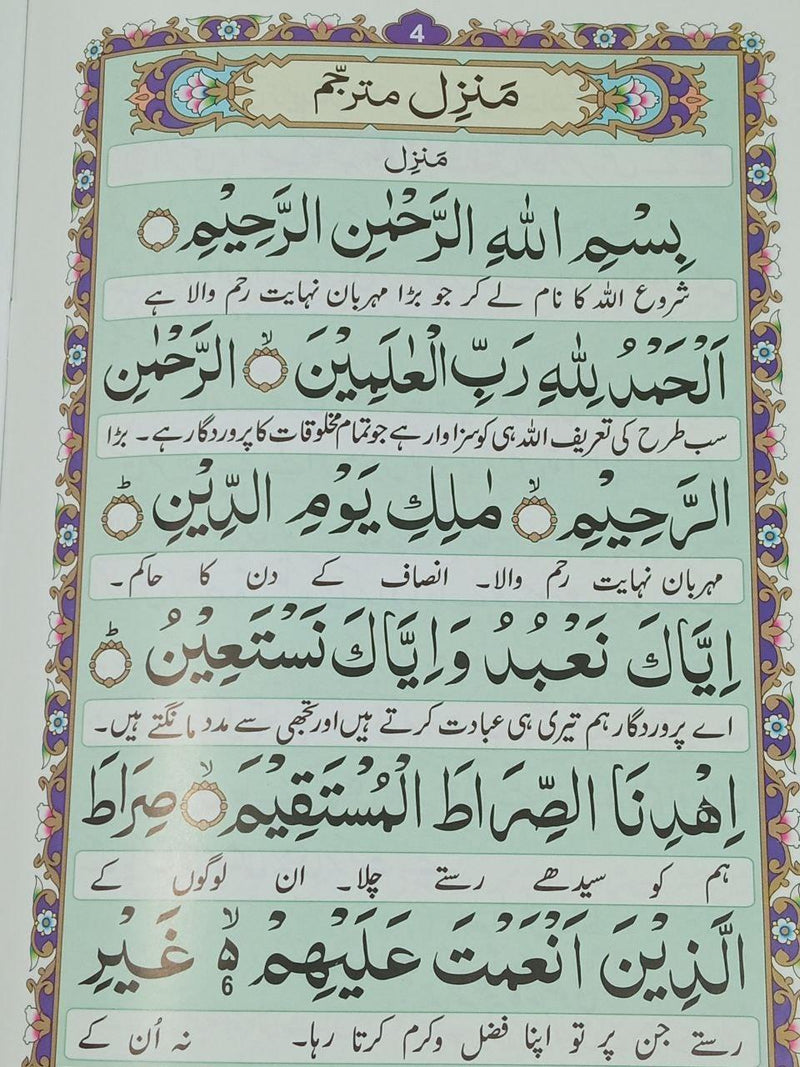 4
مَنزِل مترجَم
مَنزِل
بِسْمِ اللّٰهِ الرَّحْمٰنِ الرَّحِيْمِ
شروع اللہ کا نام لے کر جو بڑا مہربان نہایت رحم والا ہے
اَلْحَمْدُ لِلّٰهِ رَبِّ الْعٰلَمِيْنَ ۙ الرَّحْمٰنِ
سب طرح کی تعریف اللہ ہی کو سزاوار ہے جو تمام مخلوقات کا پروردگار ہے۔ بڑا
الرَّحِيْمِ ۙ مٰلِكِ يَوْمِ الدِّيْنِ ؕ
مہربان نہایت رحم والا۔ انصاف کے دن کا حاکم۔
اِيَّاكَ نَعْبُدُ وَاِيَّاكَ نَسْتَعِيْنُ ؕ
اے پروردگار ہم تیری ہی عبادت کرتے ہیں اور تجھی سے مدد مانگتے ہیں۔
اِهْدِنَا الصِّرَاطَ الْمُسْتَقِيْمَ ۙ صِرَاطَ
ہم کو سیدھے رستے چلا۔ ان لوگوں کے
الَّذِيْنَ اَنْعَمْتَ عَلَيْهِمْ ۙ۵ 6 غَيْرِ
رستے جن پر تو اپنا فضل وکرم کرتا رہا۔ نہ اُن کے